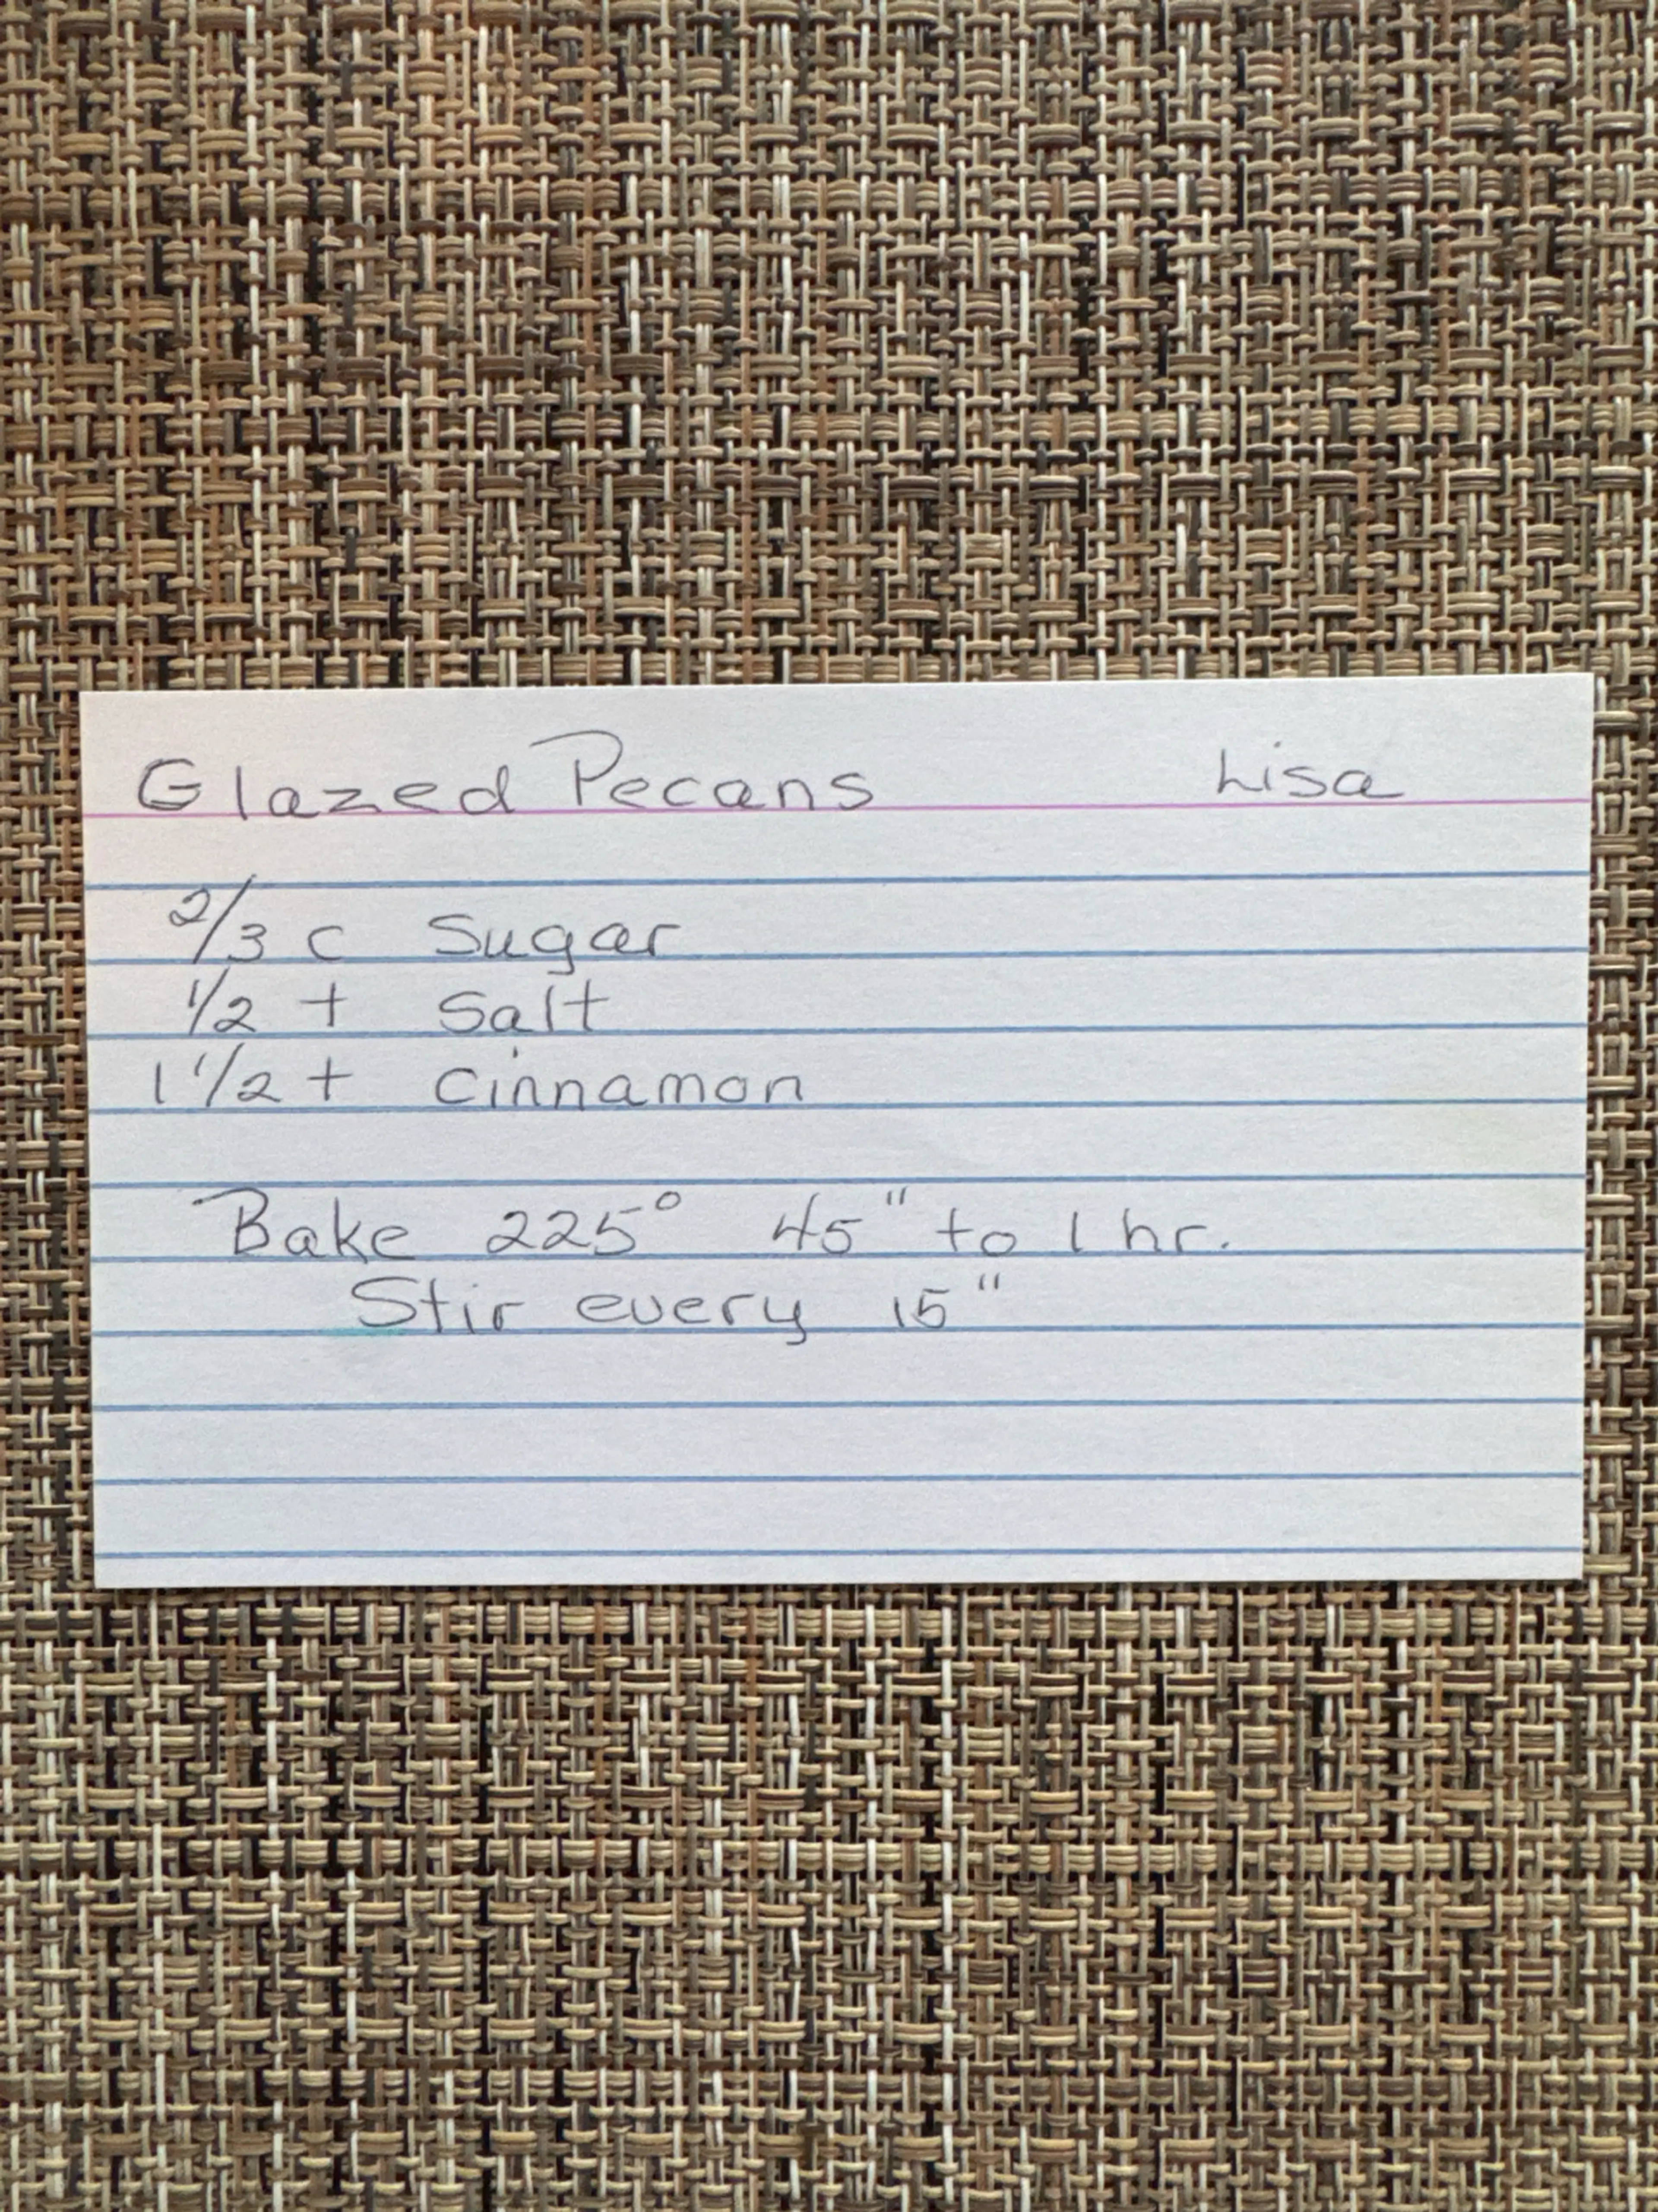 Glazed Pecans Lisa
2/3 c Sugar
1/2 t Salt
1 1/2 t Cinnamon
Bake 225° 45" to 1 hr.
Stir every 15"